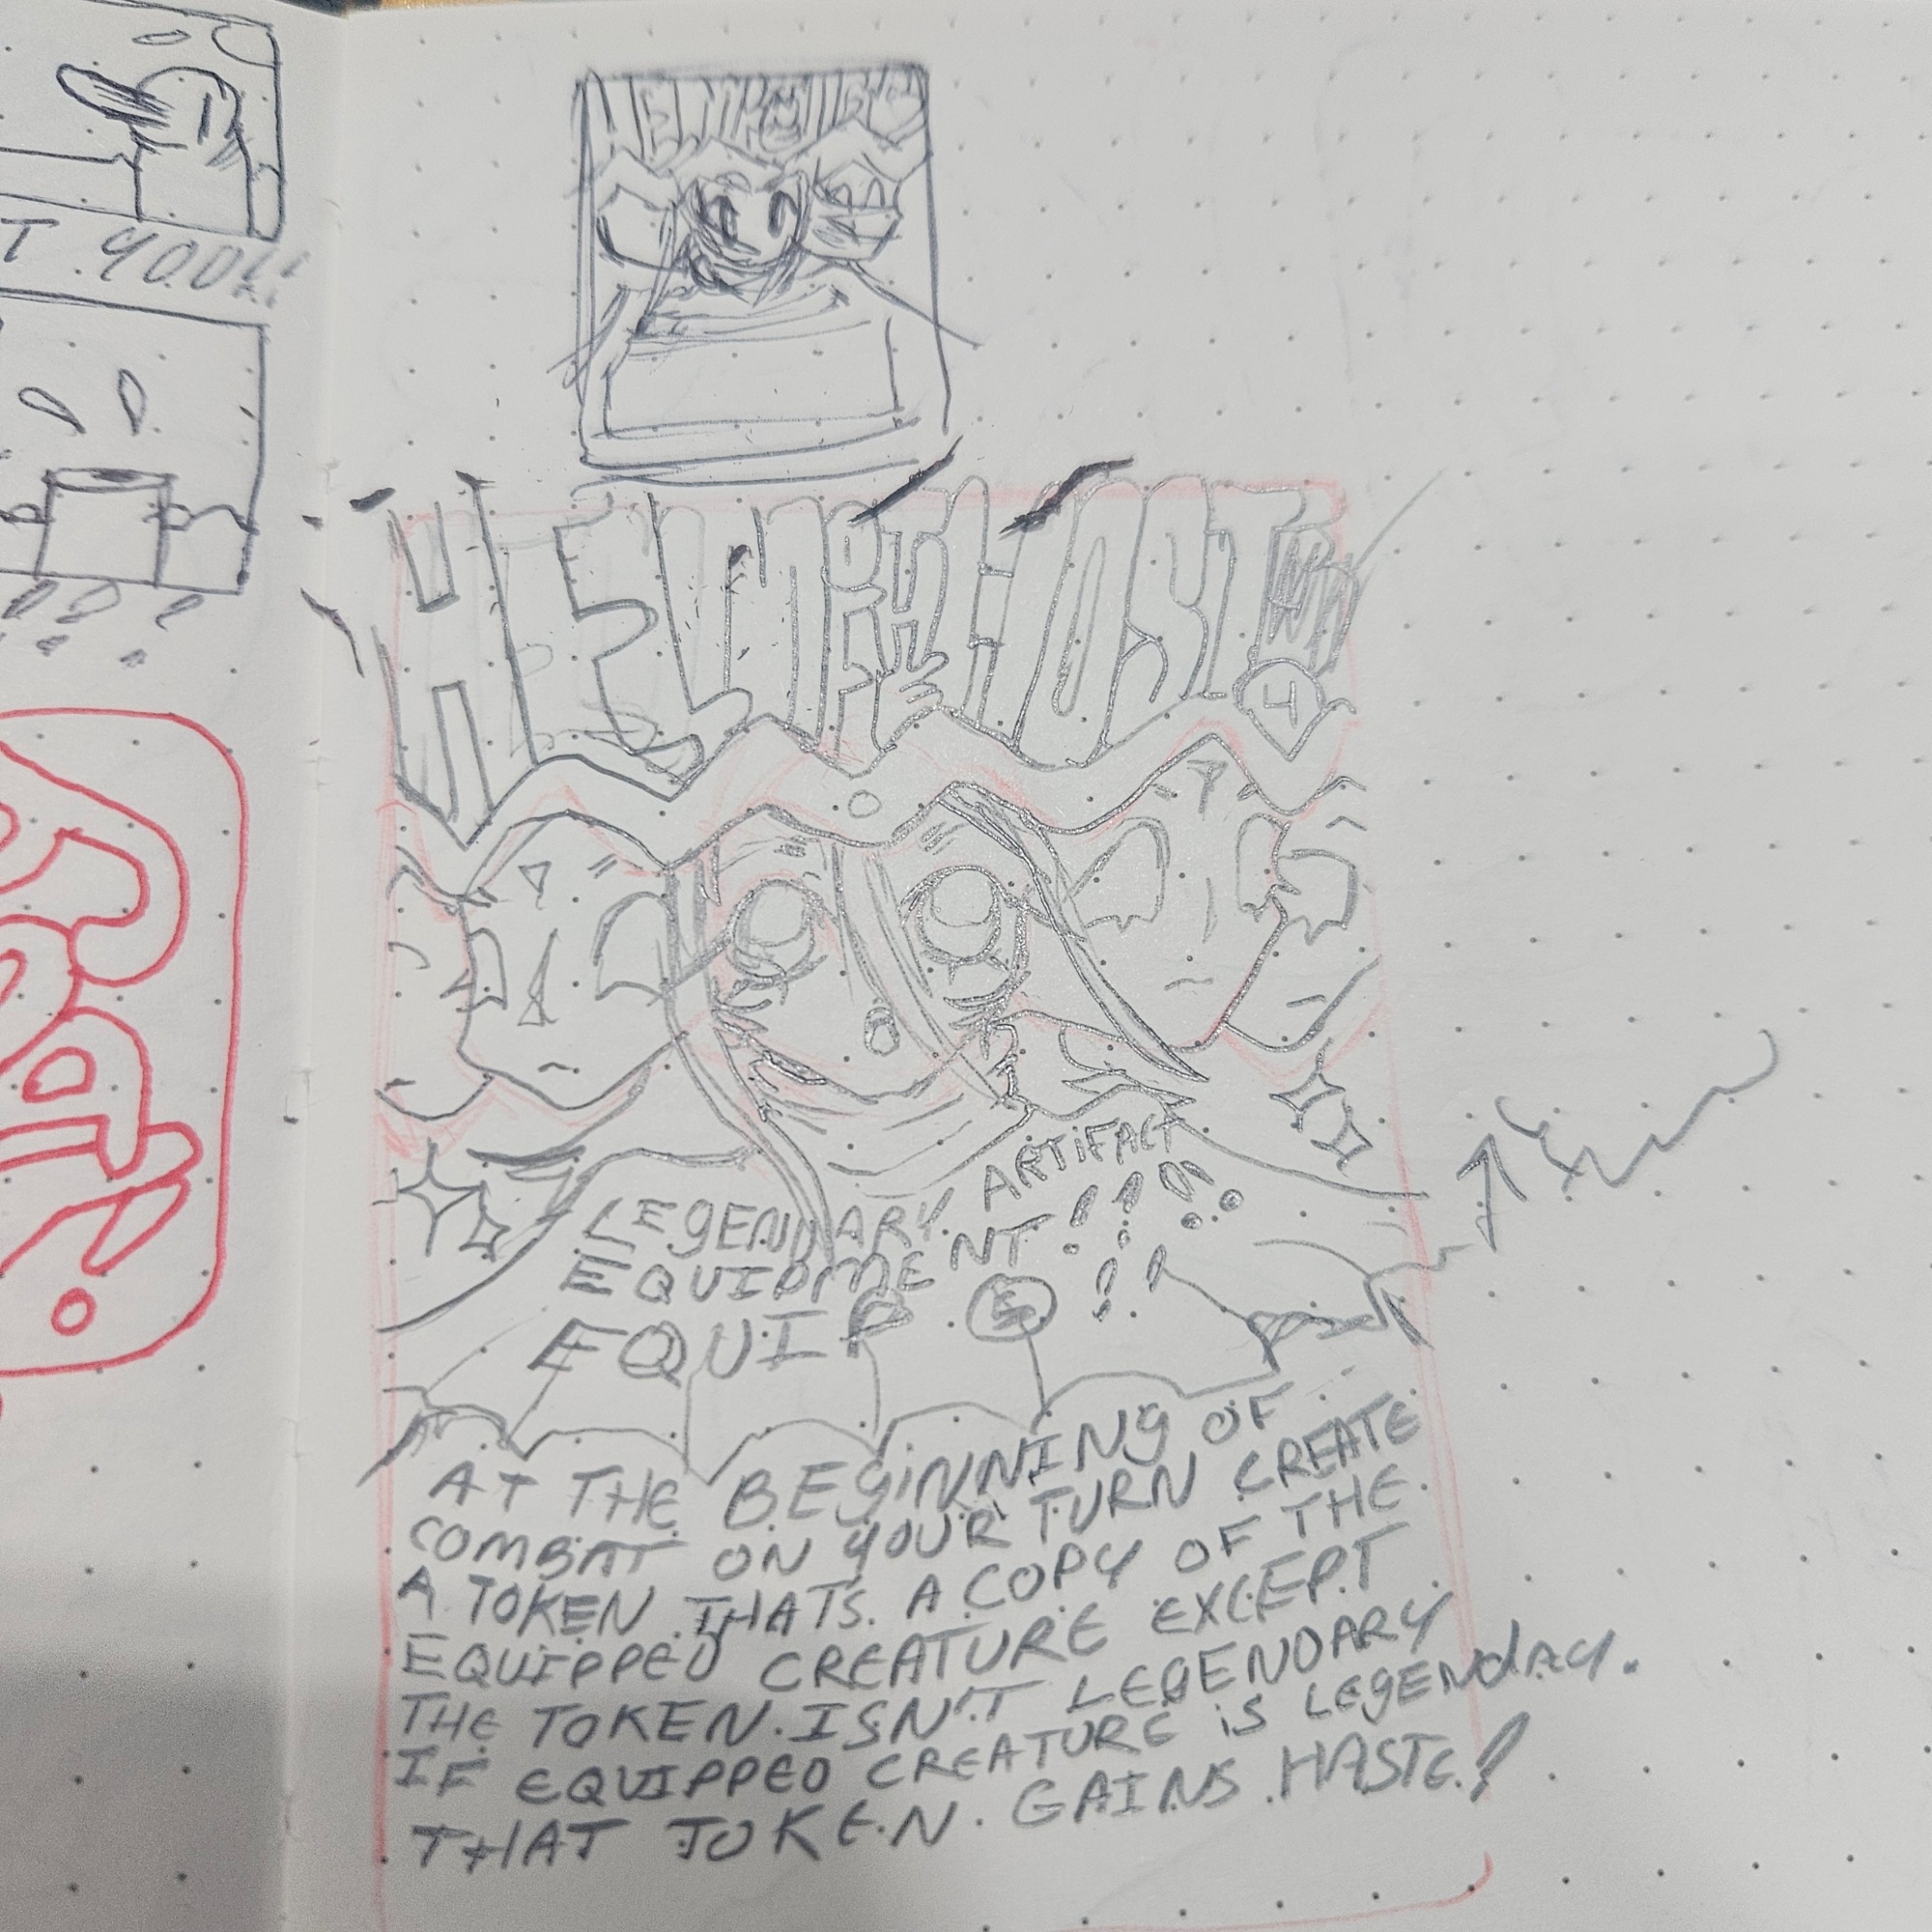 T . YOOU
HELM OF THE HOST
4
LEGENDARY. ARTIFACT
EQUIPMENT
EQUIP . 5
AT THE BEGINNING OF
COMBAT ON YOUR TURN CREATE
A TOKEN THATS. A COPY OF THE.
EQUIPPED CREATURE EXCEPT
THE TOKEN ISN'T LEGENDARY
IF EQUIPPED CREATURE iS LEGENDAY.
THAT TOKEN. GAINS HASTE!